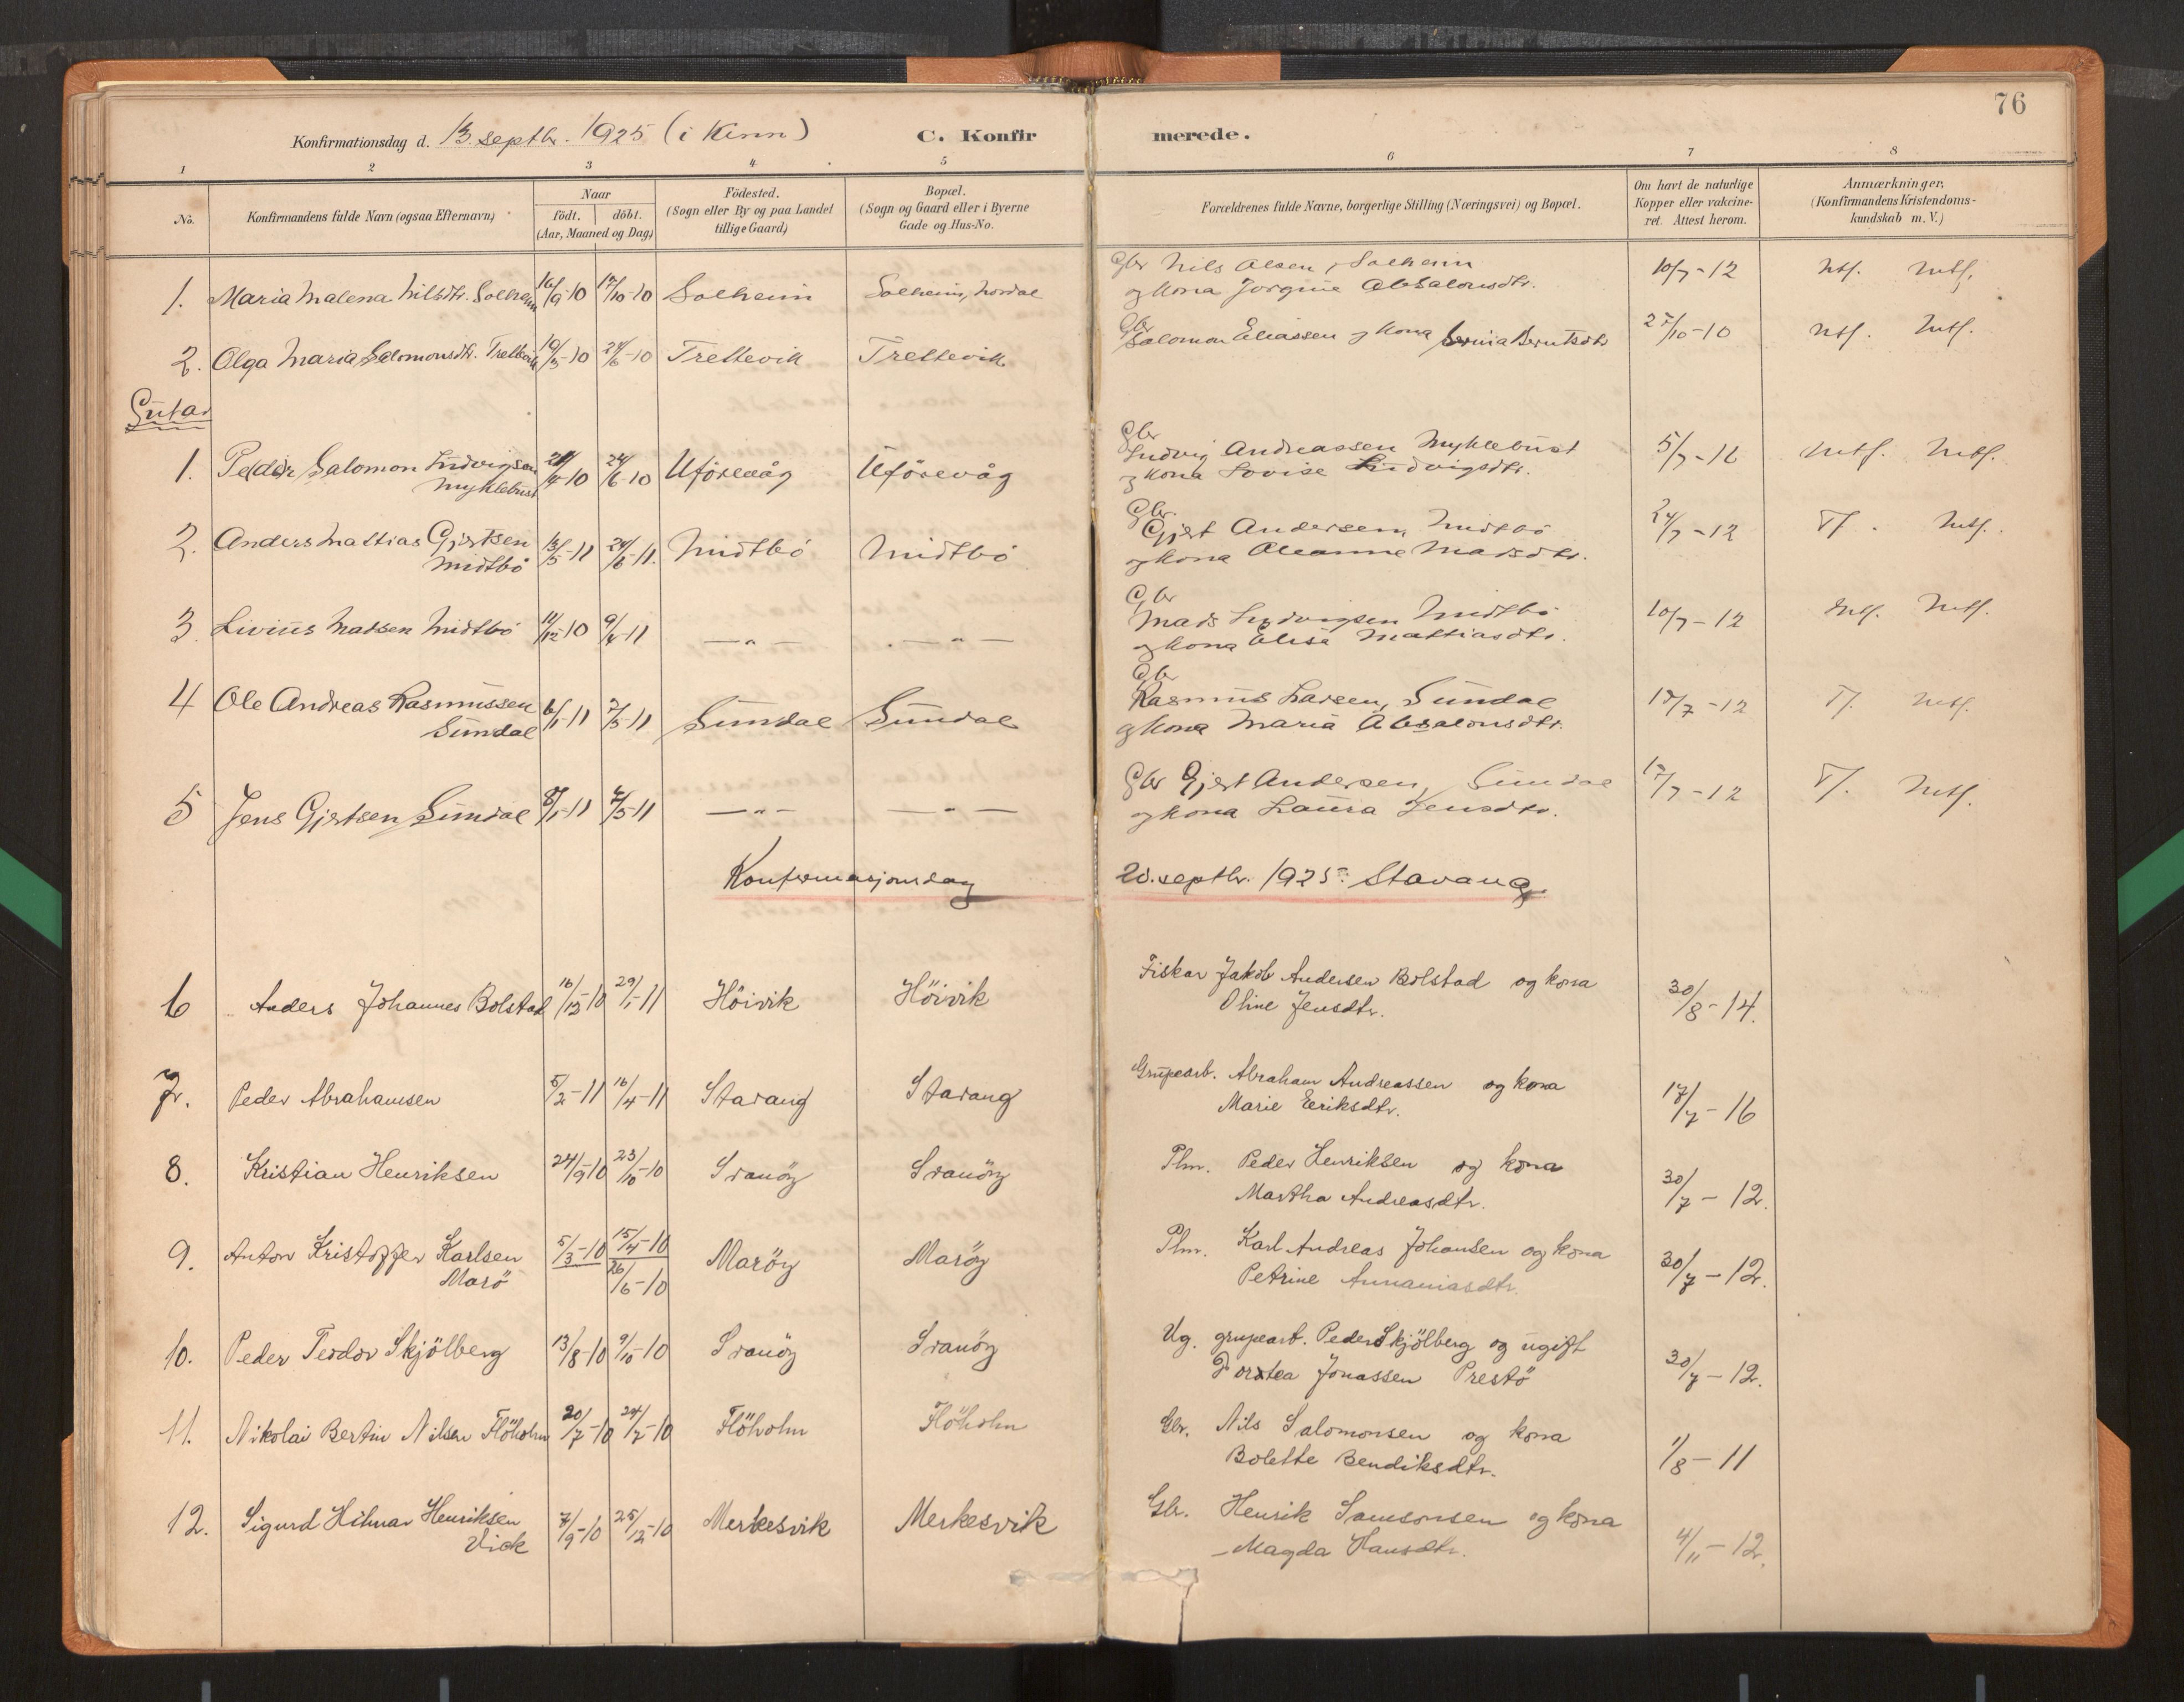 76
Konfirmationsdag d. 13. septbr. 1925 (i Kinn) C. Konfirmerede.
1 2 3 4 5 6 7 8
No. Konfirmandens fulde Navn (ogsaa Efternavn) Naar födt. döbt. (Aar, Maaned og Dag) Födested. (Sogn eller By og paa Landet tillige Gaard) Bopæl. (Sogn og Gaard eller i Byerne Gade og Hus-No. Forældrenes fulde Navne, borgerlige Stilling (Næringsvei) og Bopæl. Om havt de naturlige Kopper eller vakcineret. Attest herom. Anmærkninger. (Konfirmandens Kristendomskundskab m. V.)
1. Maria Malena Nilsdtr. Solheim 16/9-10 17/10-10 Solheim Solheim, Nordal Gbr Nils Olsen, Solheim
og kona Jorgine Absalonsdtr. 10/7-12 Mtf. Mtf.
2. Olga Maria Salomonsdtr. Trettevik 10/5-10 24/6-10 Trettevik Trettevik Gbr
Salomon Eliassen og kona Berntsdtr 27/10-10 Mtf. Mtf.
Gutar
1. Peder Salomon Ludvigsen
Myklebust 24/6-10 Uförevåg Uförevåg Gbr
Ludvig Andreassen Myklebust
og kona Lovise Ludvigsdtr. Mtf. Mtf.
2. Anders Mattias Gjertsen
Midtbö 13/5-11 24/6-11. Midtbö Midtbö Gbr.
Gjert Andersen, Midtbö
og kona Oleanne Madsdtr. 24/7-12 T/. Mtf.
3. Livius Madsen Midtbö 11/12-10 9/4-11 —„— —„— Gbr
Mads Ludvigsen Midtbö
og kona Elisa Mattiasdtr. 10/7-12 Mtf. Mtf.
4 Ole Andreas Rasmussen
Sundal 6/1-11 7/5-11 Sundal Sundal Gbr
Rasmus Larsen, Sundal
og kona Maria Absalonsdtr. 17/7-12 T/. Mtf.
5 Jens Gjertsen Sundal 8/1-11 7/5-11 —„— —„— Gbr Gjert Andersen, Sundal
og kona Laura Jensdtr. 17/7-12 T/. Mtf.
Konfirmasjonsdag 20. septbr. 1925. Stavang.
6 Anders Johannes Bolstad 16/12-10 29/1-11 Höivik Höivik Fiskar Jakob Andersen Bolstad og kona
Oline Jensdtr. 30/8-14.
7. Peder Abrahamsen 5/2-11 16/4-11 Stavang Stavang Grupearb. Abraham Andreassen og kona
Marie Eeriksdtr. 17/7-16
8. Kristian Henriksen 24/9-10 23/10-10 Svanöy Svanöy Plm. Peder Henriksen og kona
Martha Andreasdtr. 30/7-12.
9. Anton Kristoffer Karlsen
Marö 5/3-10 15/4-10
26/6-10 Maröy Maröy Plm. Karl Andreas Johansen og kona
Petrine Annaniasdtr. 30/7-12.
10. Peder Teodor Skjölberg 13/8-10 9/10-10 Svanöy Svanöy Ug. grupearb. Peder Skjölberg og ugift
Dortea Jonassen Prestö 30/7-12.
11. Nikolai Bertin Nilsen Flöholm 20/7-10 24/7-10 Flöholm Flöholm Gbr. Nils Salomonsen og kona
Bolette Bendiksdtr. 1/8-11
12. Sigurd Hilmar Henriksen
Vick 7/9-10 25/12-10 Merkesvik Merkesvik Gbr. Henrik Samsonsen og kona
Magda Hansdtr. 4/11-12.